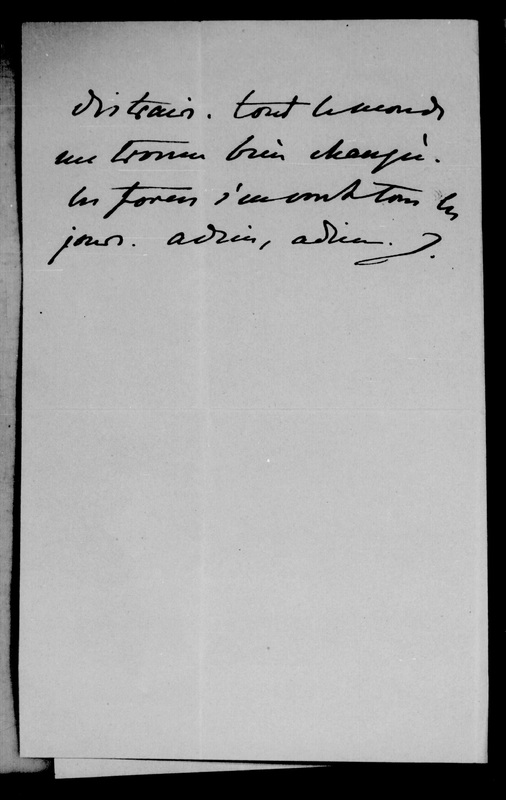 distrair. tout le monde
me trouve bien changé.
les forces s'en vont tous les
jours. adieu, adieu. J.